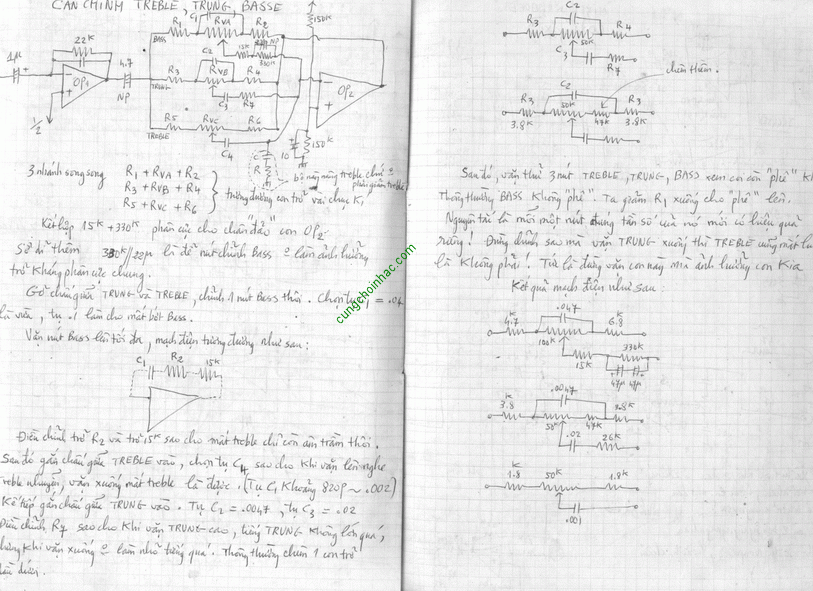 CÂN CHỈNH TREBLE, TRUNG, BASSE
1µ
22K
OP1
1/2
4.7
NP
BASS
R1
C1
RVA
R2
15K
330K
NP
150K
TRUNG
R3
C2
RVB
R4
C3
R7
OP2
TREBLE
R5
RVC
R6
C4
C
R
10
150K
3 nhánh song song
R1 + RVA + R2
R3 + RVB + R4
R5 + RVC + R6
tương đương con trở vài chục K,
Kết hợp 15K + 330K phân cực cho chân "đảo" con OP2
Sở dĩ thêm 330K // 22µ là để nút chỉnh Bass o làm ảnh hưởng
trở kháng phân cực chung.
Gỡ chấu giữa TRUNG và TREBLE, chỉnh 1 nút Bass thôi. Chọn tụ C1 = .04
là vừa, tụ .1 làm cho mất bớt Bass.
Vặn nút Bass lên tối đa, mạch điện tương đương như sau:
C1
R2
15K
Điều chỉnh trở R2 và trở 15K sao cho mất treble chỉ còn âm trầm thôi.
Sau đó gắn chấu giữa TREBLE vào, chọn tụ C4 sao cho khi vặn lên nghe
treble nhuyễn, vặn xuống mất treble là được. (Tụ C4 khoảng 820p ~ .002)
Kế tiếp gắn chấu giữa TRUNG vào. Tụ C2 = .0047, tụ C3 = .02
Điều chỉnh R7 sao cho khi vặn TRUNG cao, tiếng TRUNG không lớn quá,
khi vặn xuống o làm nhỏ tiếng quá. Thông thường chêm 1 con trở
cungchoinhac.com
C2
R3
50K
R4
C3
R7
C2
R3
50K
47K
R3
3.8K
3.8K
chêm thêm.
Sau đó, vặn thử 3 nút TREBLE, TRUNG, BASS xem coi còn "phê" K
Thông thường BASS không "phê". Ta giảm R1 xuống cho "phê" lên.
Nguyên tắc là mỗi một nút đúng tần số của nó mới có hiệu quả
riêng! Đừng chỉnh sao mà vặn TRUNG xuống thì TREBLE cũng mất
là không phải! Tức là đừng vặn con này mà ảnh hưởng con kia
Kết quả mạch điện như sau:
.047
4.7K
100K
6.8K
15K
330K
47µ
47µ
.0047
3.8K
50K
47K
3.8K
.02
26K
1.8K
50K
1.8K
.001